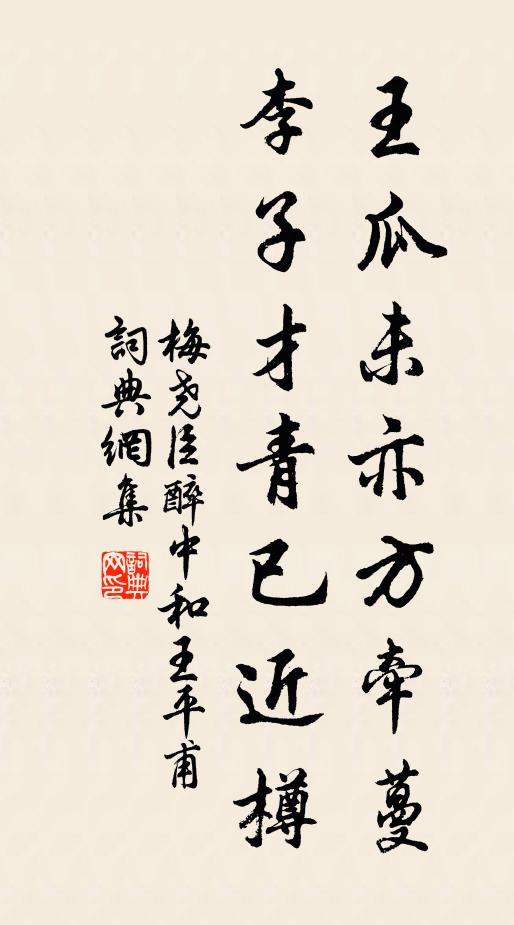 王瓜未亦方牽蔓
李子才青已近樽
梅尧臣醉中和王平甫
詞典網集
詞典
网印